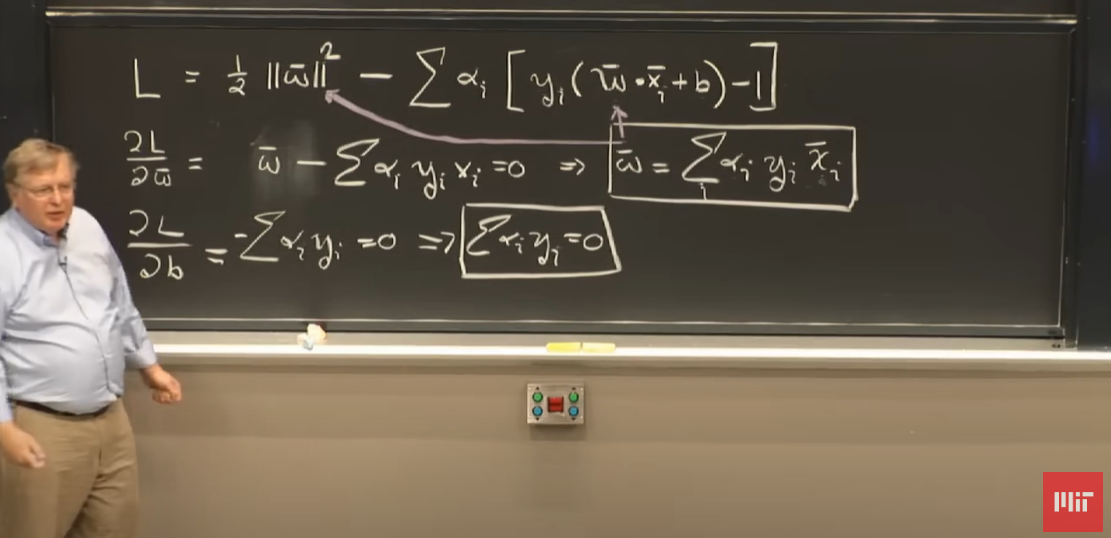 L = ½ ||w̄||² − ∑ αᵢ [ yᵢ ( w̄ • x̄ᵢ + b ) − 1 ]
∂L/∂w̄ = w̄ − ∑ αᵢ yᵢ xᵢ = 0 ⇒ w̄ = ∑ᵢ αᵢ yᵢ x̄ᵢ
∂L/∂b = -∑ αᵢ yᵢ = 0 ⇒ ∑ αᵢ yᵢ = 0
MIT